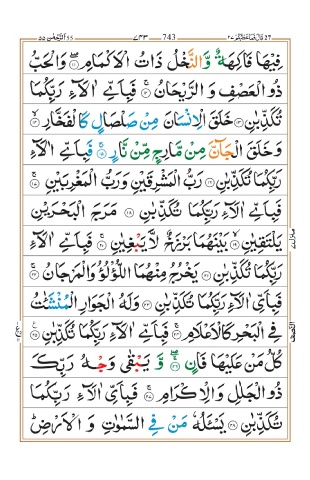 743
فِيْهَا فَاكِهَةٌ وَّالنَّخْلُ ذَاتُ الْاَكْمَامِ ۝۱۱ وَالْحَبُّ
ذُو الْعَصْفِ وَ الرَّيْحَانُ ۝۱۲ فَبِاَيِّ اٰلَآءِ رَبِّكُمَا
تُكَذِّبٰنِ ۝۱۳ خَلَقَ الْاِنْسَانَ مِنْ صَلْصَالٍ كَالْفَخَّارِ ۝۱۴
وَ خَلَقَ الْجَآنَّ مِنْ مَّارِجٍ مِّنْ نَّارٍ ۝۱۵ فَبِاَيِّ اٰلَآءِ
رَبِّكُمَا تُكَذِّبٰنِ ۝۱۶ رَبُّ الْمَشْرِقَيْنِ وَرَبُّ الْمَغْرِبَيْنِ ۝۱۷
فَبِاَيِّ اٰلَآءِ رَبِّكُمَا تُكَذِّبٰنِ ۝۱۸ مَرَجَ الْبَحْرَيْنِ
يَلْتَقِيٰنِ ۝۱۹ بَيْنَهُمَا بَرْزَخٌ لَّا يَبْغِيٰنِ ۝۲۰ فَبِاَيِّ اٰلَآءِ
رَبِّكُمَا تُكَذِّبٰنِ ۝۲۱ يَخْرُجُ مِنْهُمَا اللُّؤْلُؤُ وَالْمَرْجَانُ ۝۲۲
فَبِاَيِّ اٰلَآءِ رَبِّكُمَا تُكَذِّبٰنِ ۝۲۳ وَلَهُ الْجَوَارِ الْمُنْشَـٰٔتُ
فِي الْبَحْرِ كَالْاَعْلَامِ ۝۲۴ فَبِاَيِّ اٰلَآءِ رَبِّكُمَا تُكَذِّبٰنِ ۝۲۵
كُلُّ مَنْ عَلَيْهَا فَانٍ ۝۲۶ وَّ يَبْقٰى وَجْهُ رَبِّكَ
ذُو الْجَلٰلِ وَالْاِكْرَامِ ۝۲۷ فَبِاَيِّ اٰلَآءِ رَبِّكُمَا
تُكَذِّبٰنِ ۝۲۸ يَسْـَٔلُهٗ مَنْ فِي السَّمٰوٰتِ وَ الْاَرْضِ ؕ